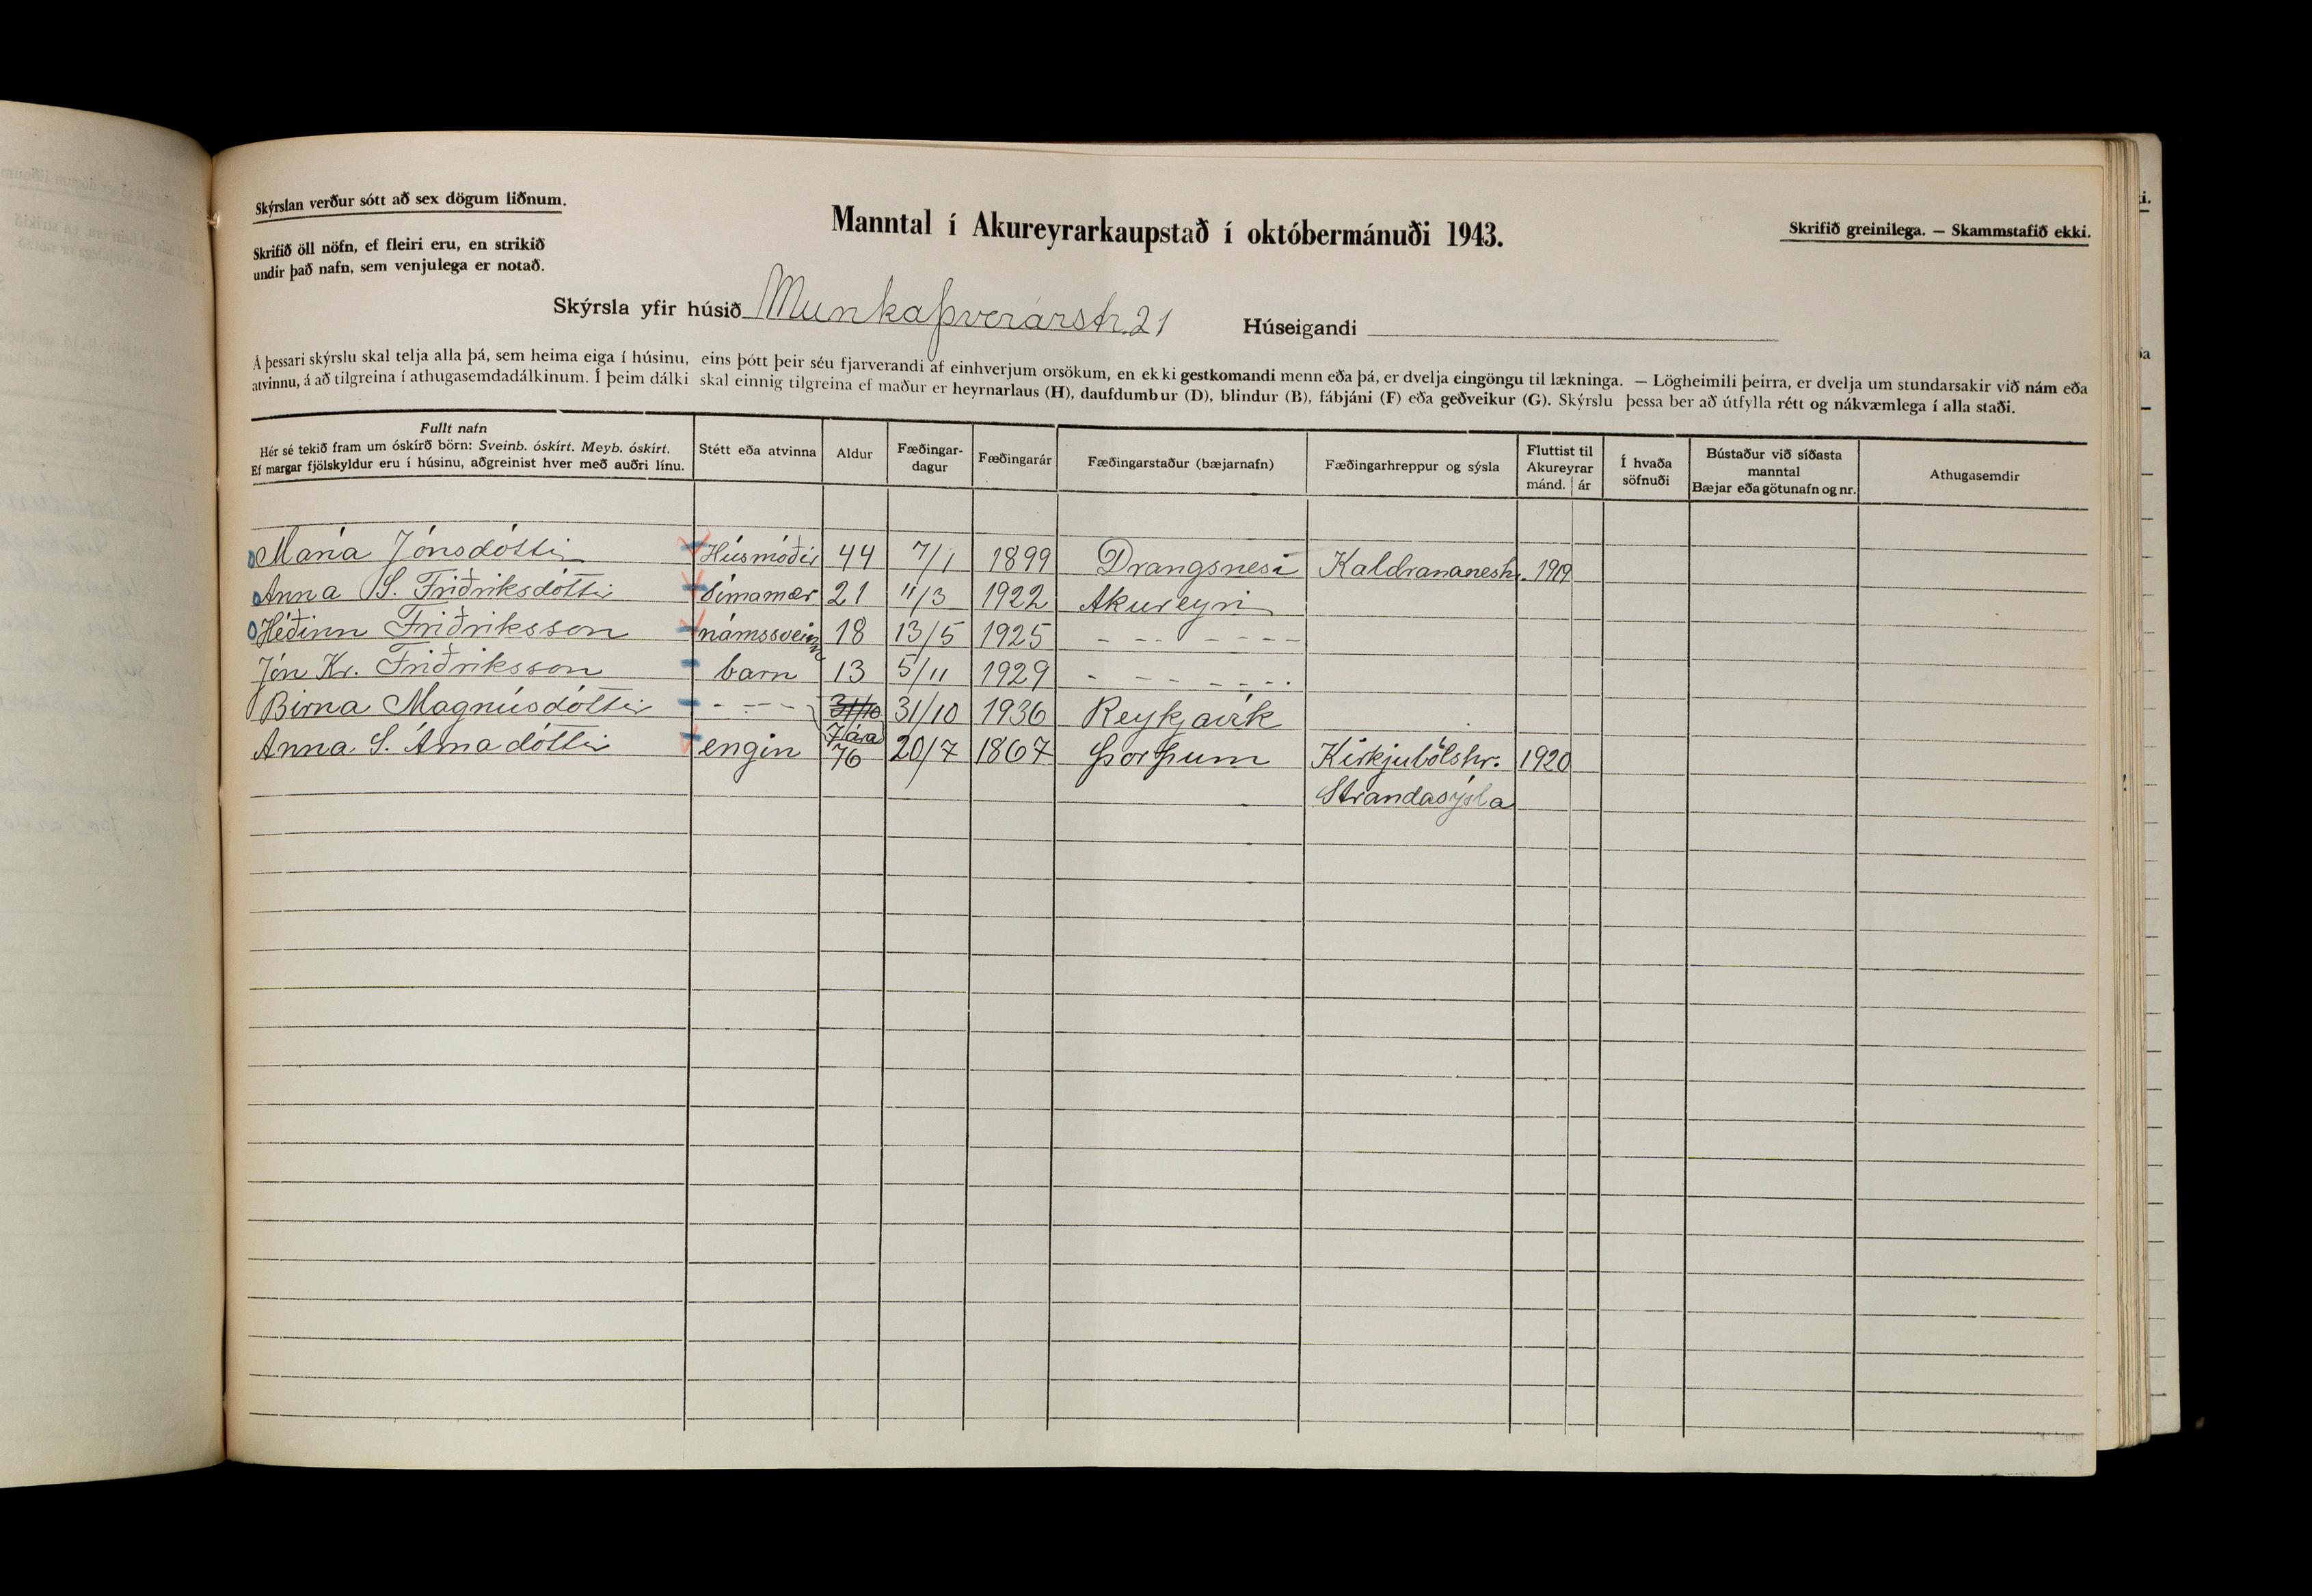 Skýrslan verður sótt að sex dögum liðnum.
Skrifið öll nöfn, ef fleiri eru, en strikið
undir það nafn, sem venjulega er notað.
Manntal í Akureyrarkaupstað í októbermánuði 1943.
Skrifið greinilega. — Skammstafið ekki.
Skýrsla yfir húsið Munkaþverárstr. 21 Húseigandi
Á þessari skýrslu skal telja alla þá, sem heima eiga í húsinu, eins þótt þeir séu fjarverandi af einhverjum orsökum, en ekki gestkomandi menn eða þá, er dvelja eingöngu til lækninga. — Lögheimili þeirra, er dvelja um stundarsakir við nám eða
atvinnu, á að tilgreina í athugasemdadálkinum. Í þeim dálki skal einnig tilgreina ef maður er heyrnarlaus (H), daufdumbur (D), blindur (B), fábjáni (F) eða geðveikur (G). Skýrslu þessa ber að útfylla rétt og nákvæmlega í alla staði.
Fullt nafn
Hér sé tekið fram um óskírð börn: Sveinb. óskírt. Meyb. óskírt.
Ef margar fjölskyldur eru í húsinu, aðgreinist hver með auðri línu.
Stétt eða atvinna
Aldur
Fæðingar-
dagur
Fæðingarár
Fæðingarstaður (bæjarnafn)
Fæðingarhreppur og sýsla
Fluttist til
Akureyrar
mánd. ár
Í hvaða
söfnuði
Bústaður við síðasta
manntal
Bæjar eða götunafn og nr.
Athugasemdir
María Jónsdóttir Húsmóðir 44 7/1 1899 Drangsnesi Kaldrananeshr. 1919
Anna S. Friðriksdóttir símamær 21 11/3 1922 Akureyri
Héðinn Friðriksson námssveinn 18 13/5 1925 - - - - - - -
Jón Kr. Friðriksson barn 13 5/11 1929 - - - - - - -
Birna Magnúsdóttir - - - 31/10 7 ára 31/10 1936 Reykjavík
Anna S. Árnadóttir engin 76 20/7 1867 Þorpum Kirkjubólshr. 1920
Strandasýsla